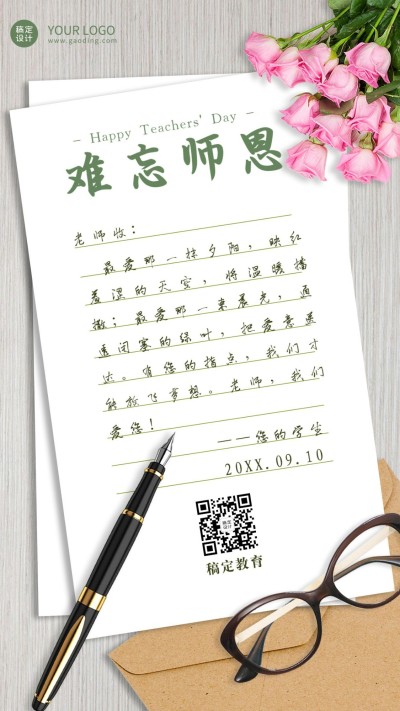 稿定设计
YOUR LOGO
www.gaoding.com
- Happy Teachers' Day -
难忘师恩
老师收：
最爱那一抹夕阳，映红
羞涩的天空，将温暖播
撒；最爱那一束晨光，通
透闭塞的绿叶，把爱意表
达。有您的指点，我们才
能标飞梦想。老师，我们
爱您！
——您的学生
20XX.09.10
稿定设计
稿定教育